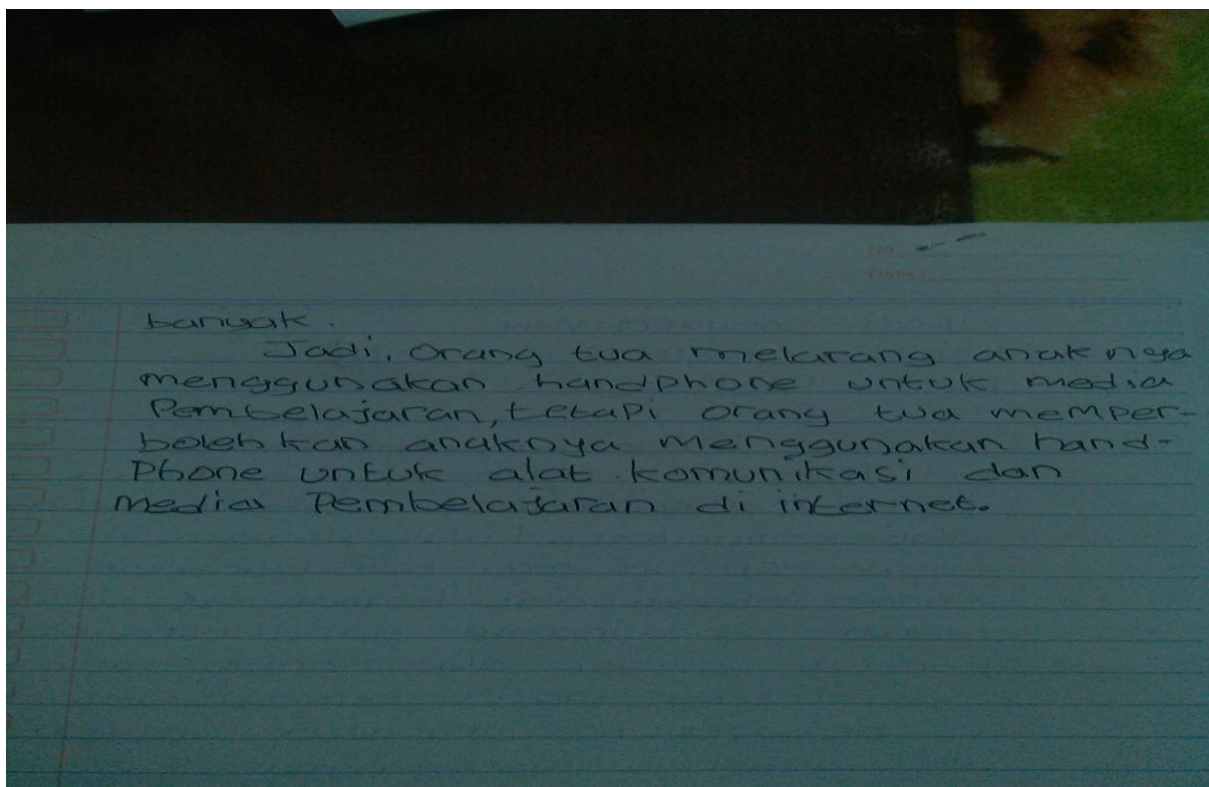 No.
Date :
banyak.
Jadi, orang tua melarang anak nya
menggunakan handphone untuk media
Pembelajaran, tetapi orang tua memper-
boleh kan anaknya menggunakan hand-
Phone untuk alat komunikasi dan
media Pembelajaran di internet.